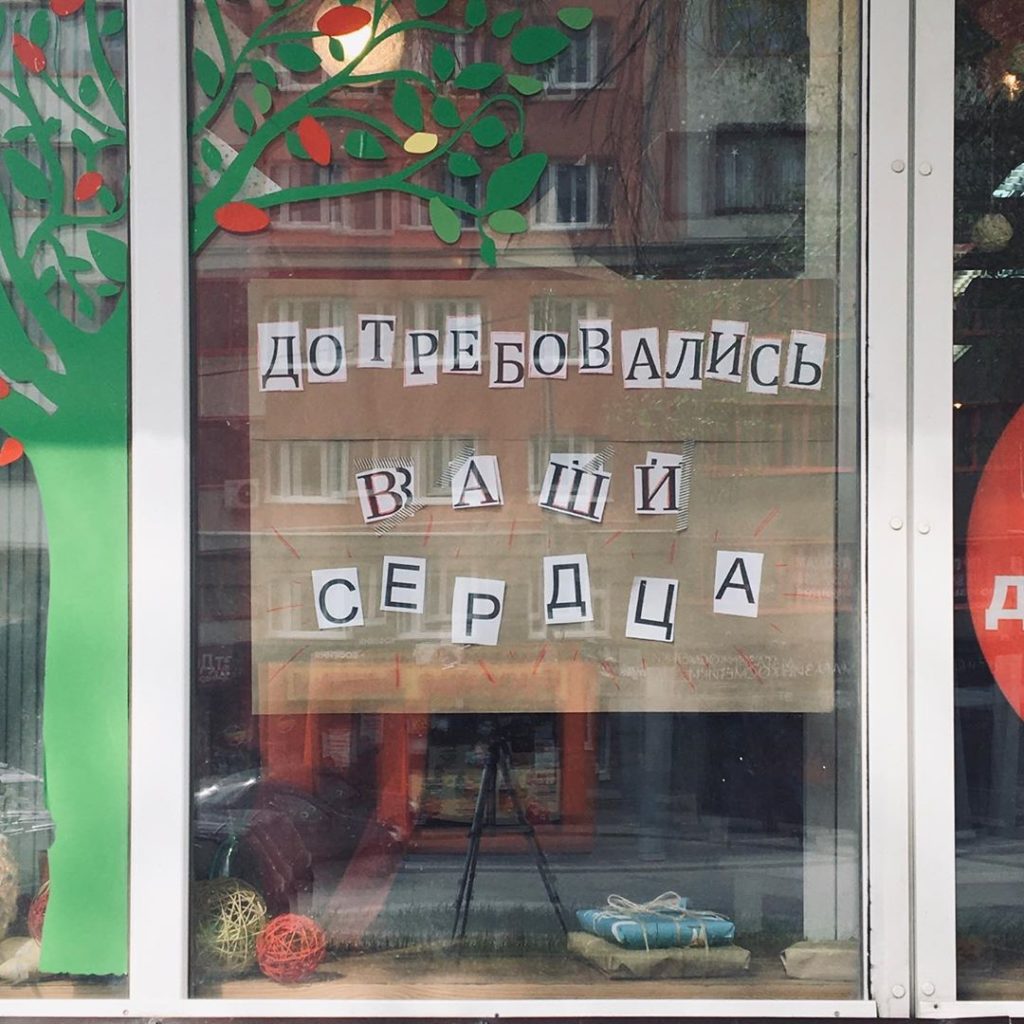 ДОТРЕБОВАЛИСЬ
ВАШИ
СЕРДЦА